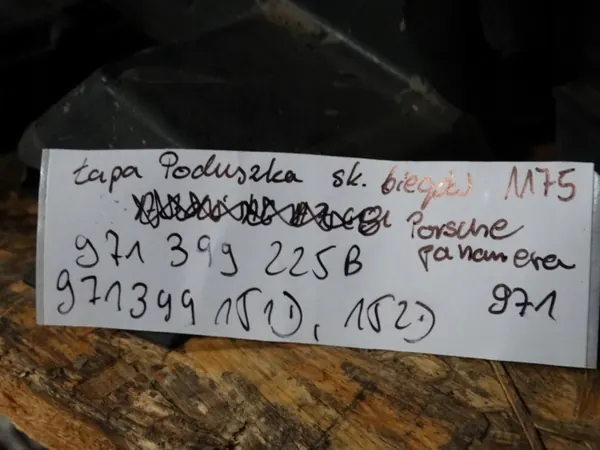 Łapa Poduszka sk. biegów 1175
Porsche
panamera
971 399 225B
971
971399 151), 152)